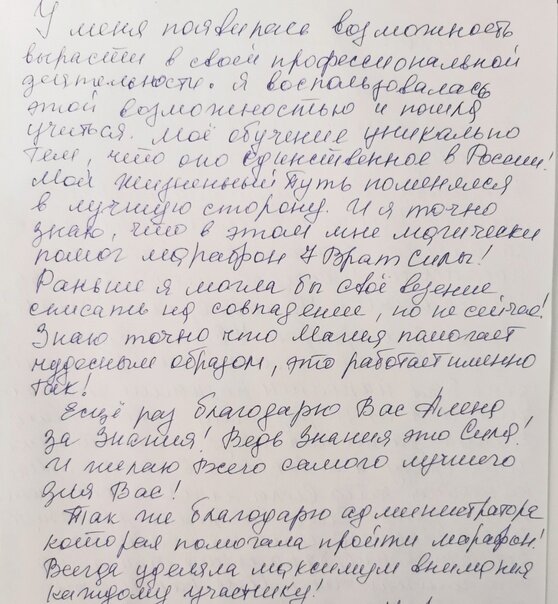 У меня появилась возможность
вырасти в своей профессиональной
деятельности. Я воспользовалась
этой возможностью и пошла
учиться. Моё обучение уникально
тем, что оно единственное в России!
Мой жизненный путь поменялся
в лучшую сторону. И я точно
знаю, что в этом мне магически
помог марафон 7 Врат Силы!
Раньше я могла бы своё везение
списать на совпадение, но не сейчас!
Знаю точно что Магия помогает
чудесным образом, это работает именно
так!
Ещё раз благодарю Вас Алена
за Знания! Ведь Знания это Сила!
И желаю Всего самого лучшего
для Вас!
Так же благодарю администратора
которая помогала пройти марафон!
Всегда уделяла максимум внимания
каждому участнику!